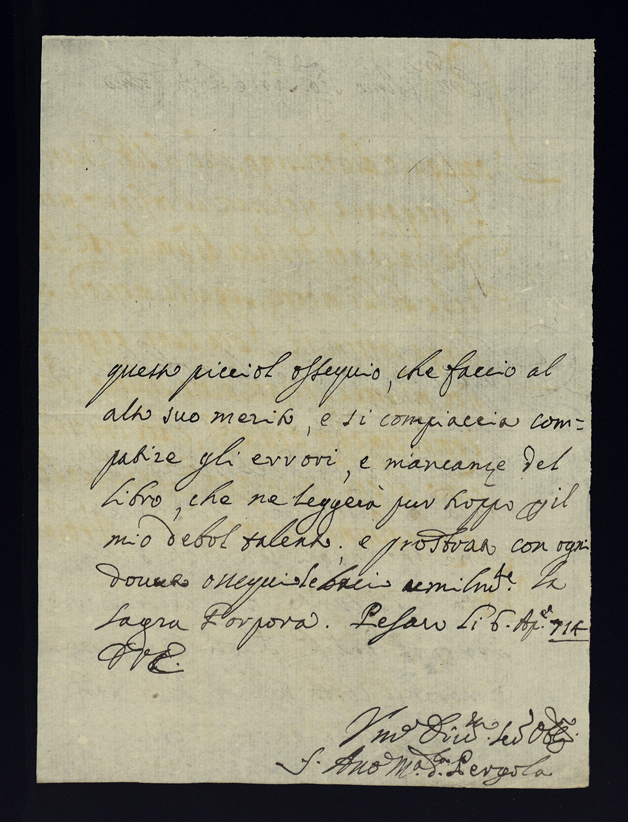 questo picciol ossequio, che faccio al
alto suo merito, e si compiaccia com=
patire gli errori, e mancanze del
libro, che ne leggerà pur troppo il
mio debol talento; e prostrato con ogni
ossequio le bacio umilmte. la
sagra Porpora. Pesaro li 6. Ape. 714
D V E.
Umo Servo
F. Anto Ma. da Pergola